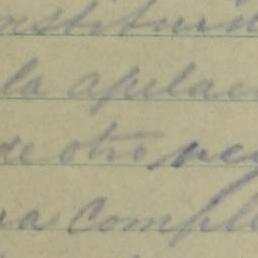 nstitui
la apelac
de otro
ra Compl